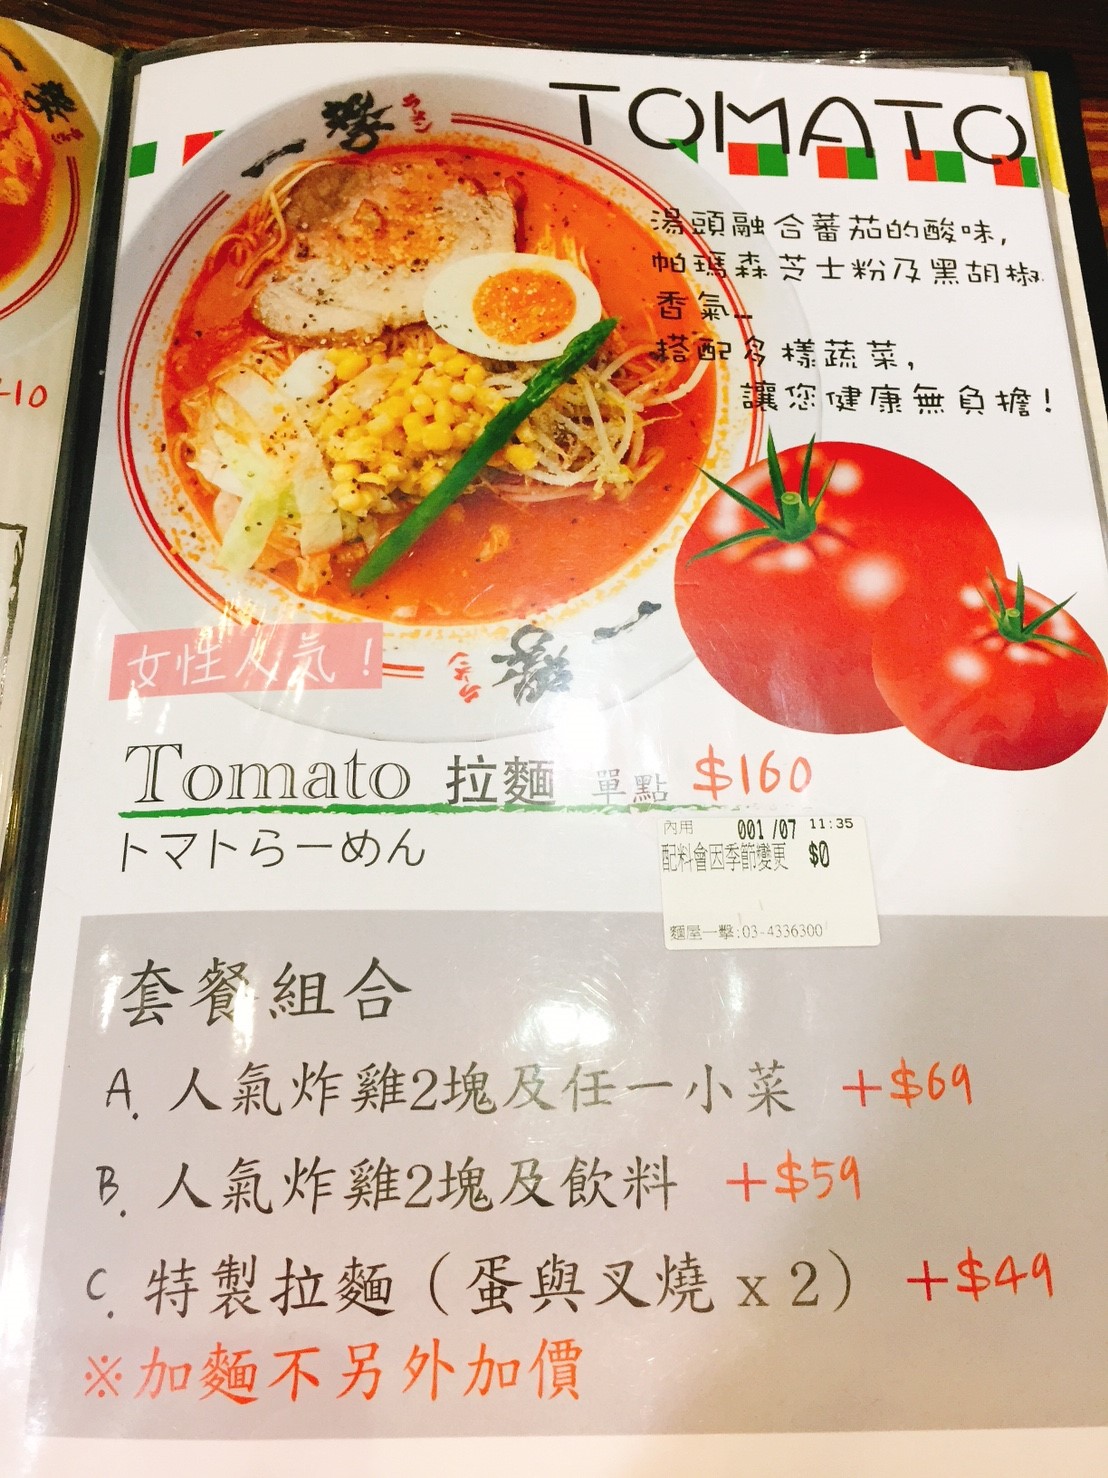 一撃
ラーメン
TOMATO
湯頭融合蕃茄的酸味,
帕瑪森芝士粉及黑胡椒
香氣...
搭配多樣蔬菜,
讓您健康無負擔!
一撃
ラーメン
女性人気!
Tomato 拉麵 單點 $160
トマトらーめん
內用 001/07 11:35
配料會因季節變更 $0
麵屋一擊:03-4336300
套餐組合
A. 人氣炸雞2塊及任一小菜 +$69
B. 人氣炸雞2塊及飲料 +$59
C. 特製拉麵(蛋與叉燒 x 2) +$49
※加麵不另外加價